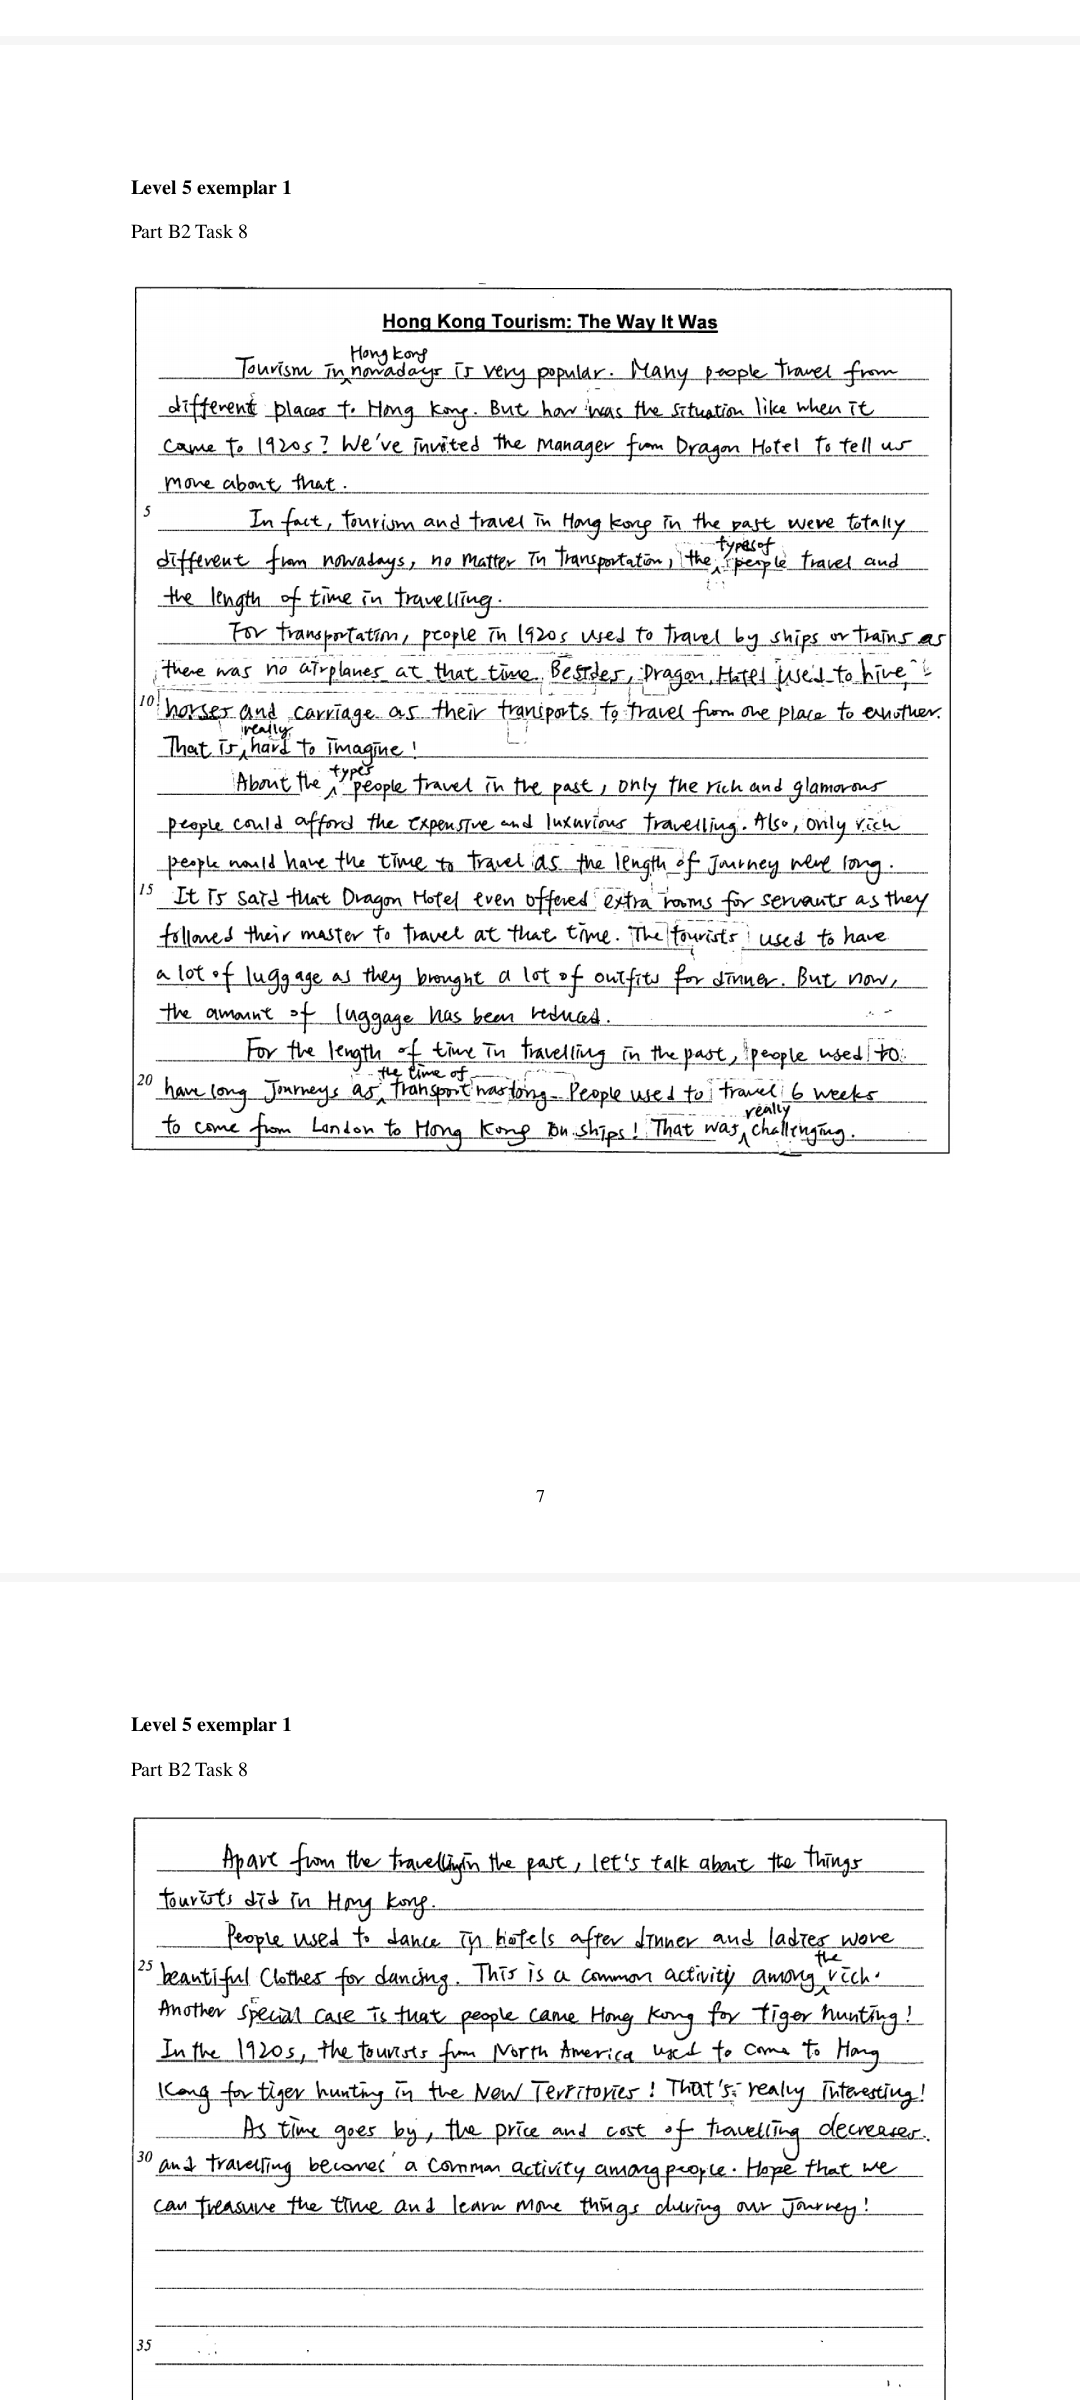 Level 5 exemplar 1
Part B2 Task 8
Hong Kong Tourism: The Way It Was
Tourism in Hong Kong nowadays is very popular. Many people travel from
different places to Hong Kong. But how was the situation like when it
came to 1920s? We've invited the manager from Dragon Hotel to tell us
more about that.
5 In fact, tourism and travel in Hong Kong in the past were totally
different from nowadays, no matter in transportation, the types of people travel and
the length of time in travelling.
For transportation, people in 1920s used to travel by ships or trains as
there was no airplanes at that time. Besides, Dragon Hotel used to hire
10 horses and carriage as their transports to travel from one place to another.
That is really hard to imagine!
About the types people travel in the past, only the rich and glamorous
people could afford the expensive and luxurious travelling. Also, only rich
people would have the time to travel as the length of journey were long.
15 It is said that Dragon Hotel even offered extra rooms for servants as they
followed their master to travel at that time. The tourists used to have
a lot of luggage as they brought a lot of outfits for dinner. But now,
the amount of luggage has been reduced.
For the length of time in travelling in the past, people used to
20 have long journeys as the time of transport was long. People used to travel 6 weeks
to come from London to Hong Kong on ships! That was really challenging.
7
Level 5 exemplar 1
Part B2 Task 8
Apart from the travelling in the past, let's talk about the things
tourists did in Hong Kong.
People used to dance in hotels after dinner and ladies wore
25 beautiful clothes for dancing. This is a common activity among the rich.
Another special case is that people came Hong Kong for tiger hunting!
In the 1920s, the tourists from North America used to come to Hong
Kong for tiger hunting in the New Territories! That's really interesting!
As time goes by, the price and cost of travelling decreases
30 and travelling becomes a common activity among people. Hope that we
can treasure the time and learn more things during our journey!
35